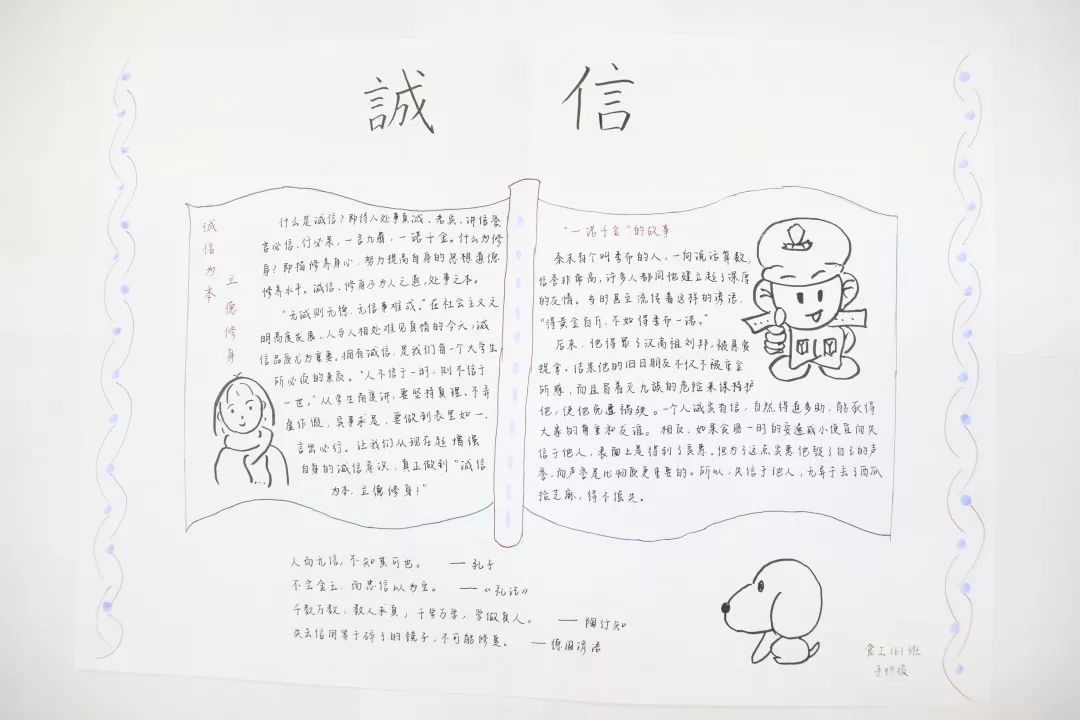 誠 信
诚信为本
立德修身
什么是诚信？即待人处事真诚、老实、讲信誉，
言必信，行必果，一言九鼎，一诺千金。什么为修
身？即指修养身心，努力提高自身的思想道德
修养水平。诚信、修身乃为人之道，处事之本。
“无诚则无德，无信事难成。”在社会主义之
明高度发展、人与人相处难见真情的今天，诚
信品质尤为重要。拥有诚信，是我们每一个大学生
所必须的素质。“人不信于一时，则不信于
一世，”从学生角度讲，要坚持真理、不弄
虚作假，实事求是，要做到表里如一、
言出必行。让我们从现在起，增强
自身的诚信意识，真正做到“诚信
为本，立德修身！”
“一诺千金”的故事
秦末有个叫季布的人，一向说话算数，
信誉非常高，许多人都同他建立起了深厚
的友情。当时甚至流传着这样的谚语：
“得黄金百斤，不如得季布一诺。”
后来，他得罪了汉高祖刘邦，被悬赏
捉拿。结果他的旧日朋友不仅不被重金
所惑，而且冒着灭九族的危险来保护
他，使他免遭祸殃。一个人诚实有信，自然得道多助，能获得
大家的尊重和友谊。相反，如果贪图一时的安逸或小便宜而失
信于他人，表面上是得到了实惠。但为了这点实惠他毁了自己的声
誉，而声誉是比物质更重要的。所以，失信于他人，无异于丢了西瓜
捡芝麻，得不偿失。
人而无信，不知其可也。 ——孔子
不宝金玉，而忠信以为宝。 ——《孔语》
千教万教，教人求真，千学万学，学做真人。 ——陶行知
失去信用等于碎了的镜子，不可能修复。 ——德国谚语
食工161班
手抄报